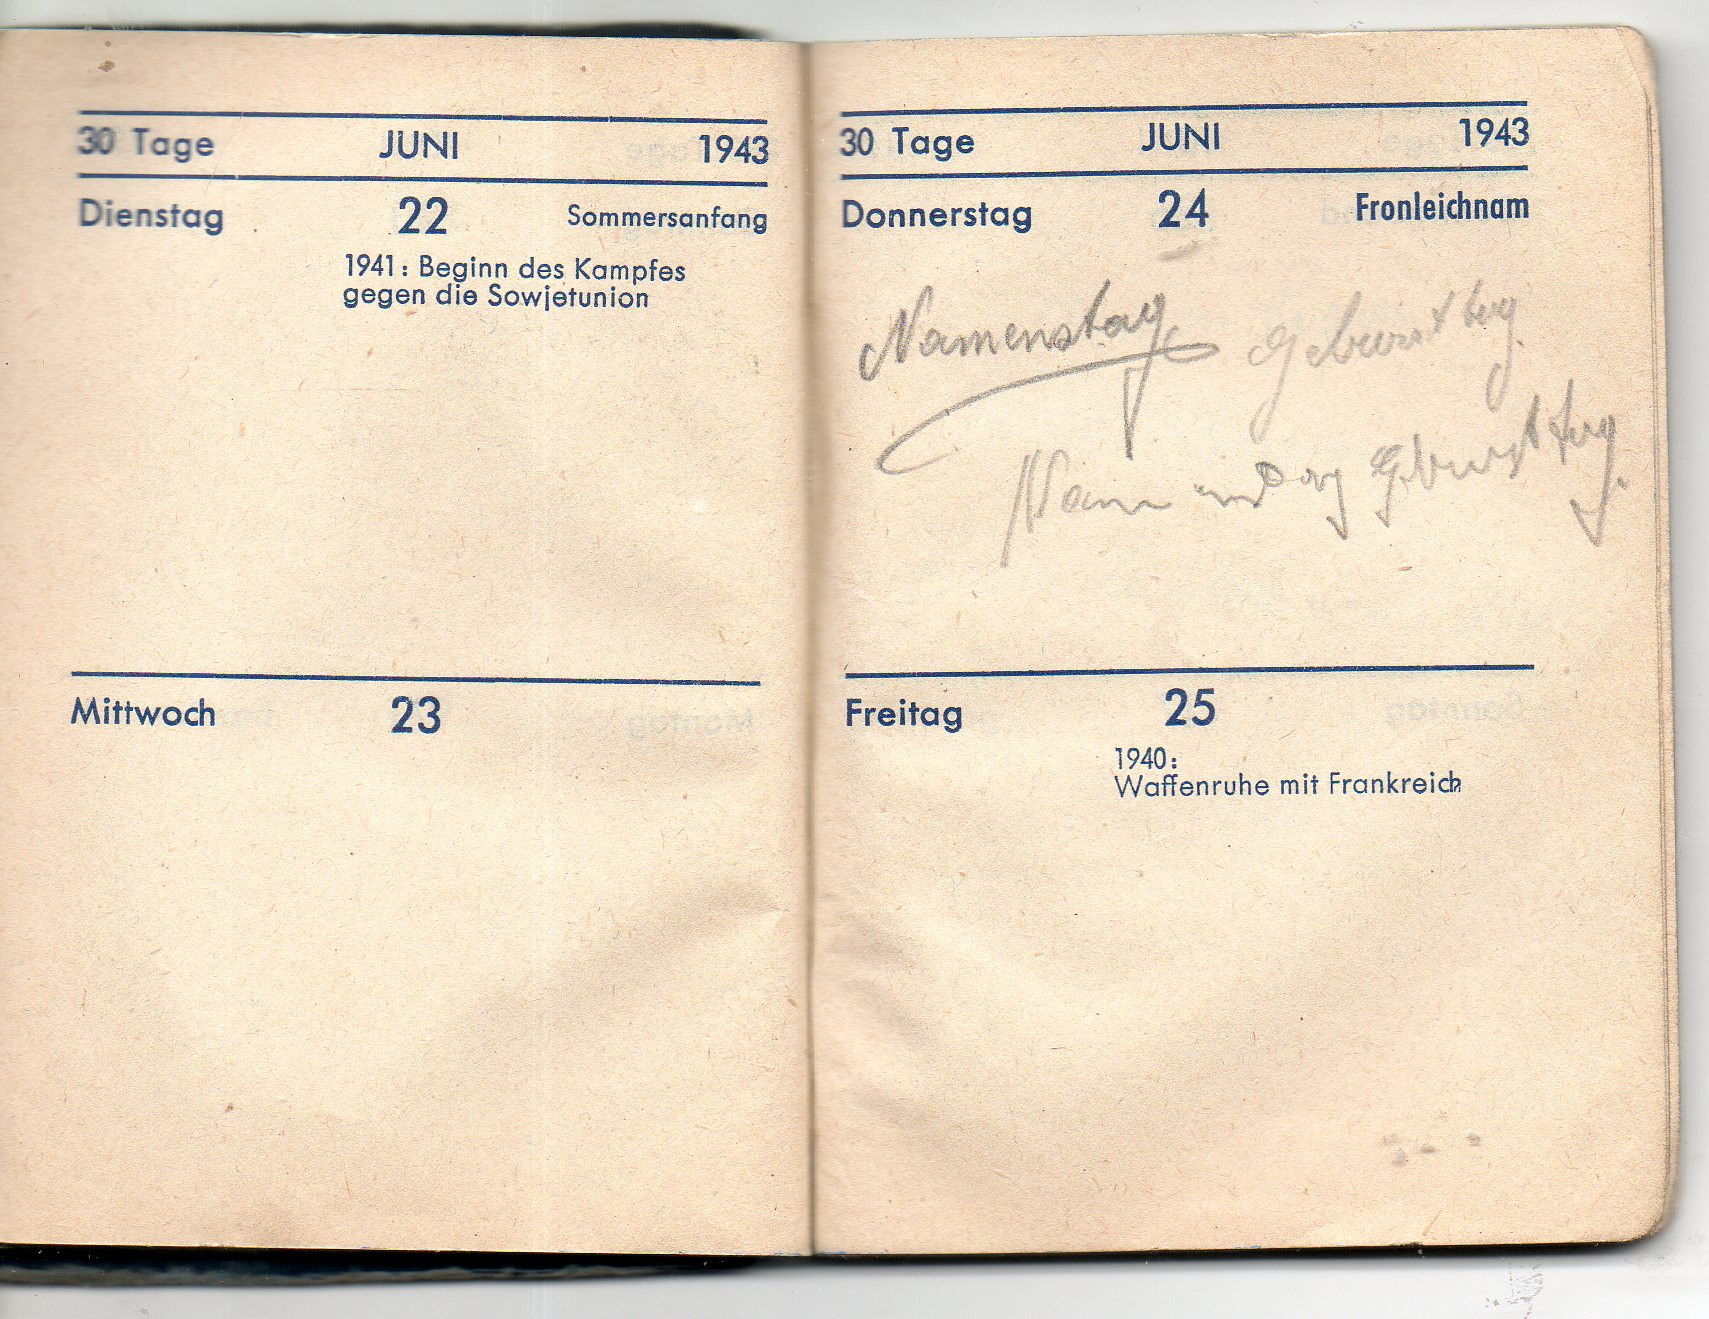 30 Tage JUNI 1943
Dienstag 22 Sommersanfang
1941: Beginn des Kampfes
gegen die Sowjetunion
Mittwoch 23
30 Tage JUNI 1943
Donnerstag 24 Fronleichnam
Namenstag Geburtstag
und Geburtstag
Freitag 25
1940:
Waffenruhe mit Frankreich